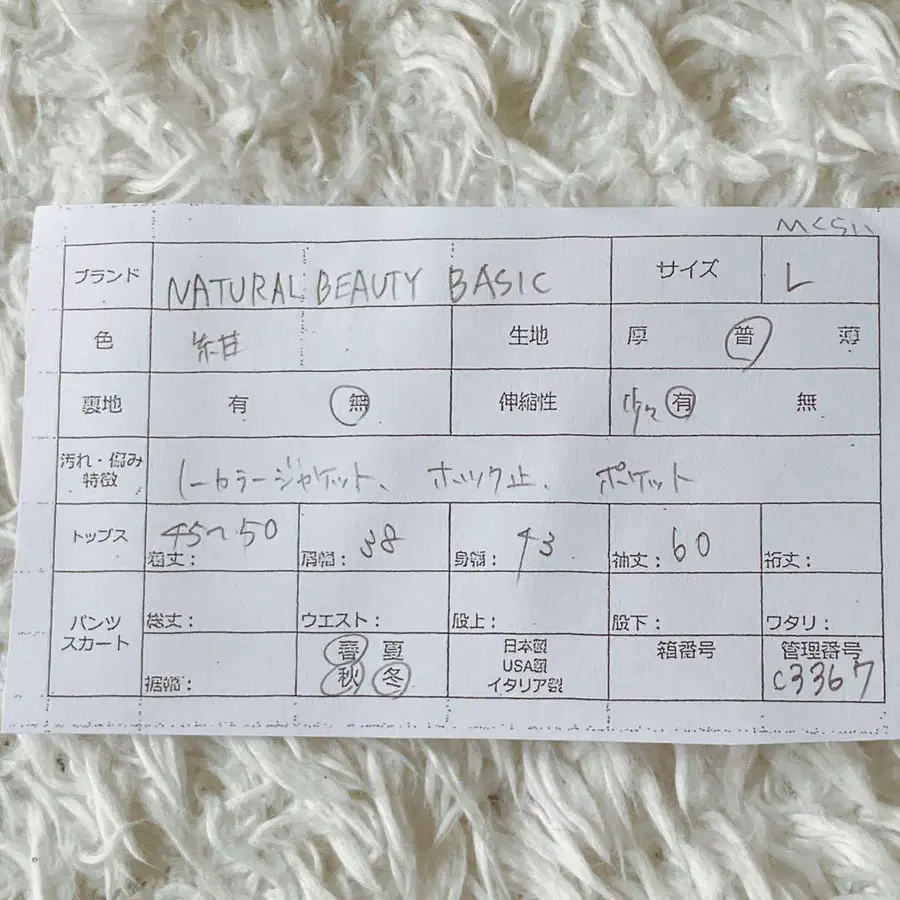 ブランド NATURAL BEAUTY BASIC サイズ L
色 紺 生地 厚 普 薄
裏地 有 無 伸縮性 少々 有 無
汚れ・傷み
特徴 ノーカラージャケット、 ホック止、 ポケット
トップス 着丈: 45〜50 肩幅: 38 身幅: 43 袖丈: 60 裄丈:
パンツ
スカート 総丈: ウエスト: 股上: 股下: ワタリ:
裾幅: 春 夏
秋 冬 日本製
USA製
イタリア製 箱番号 管理番号
C3367